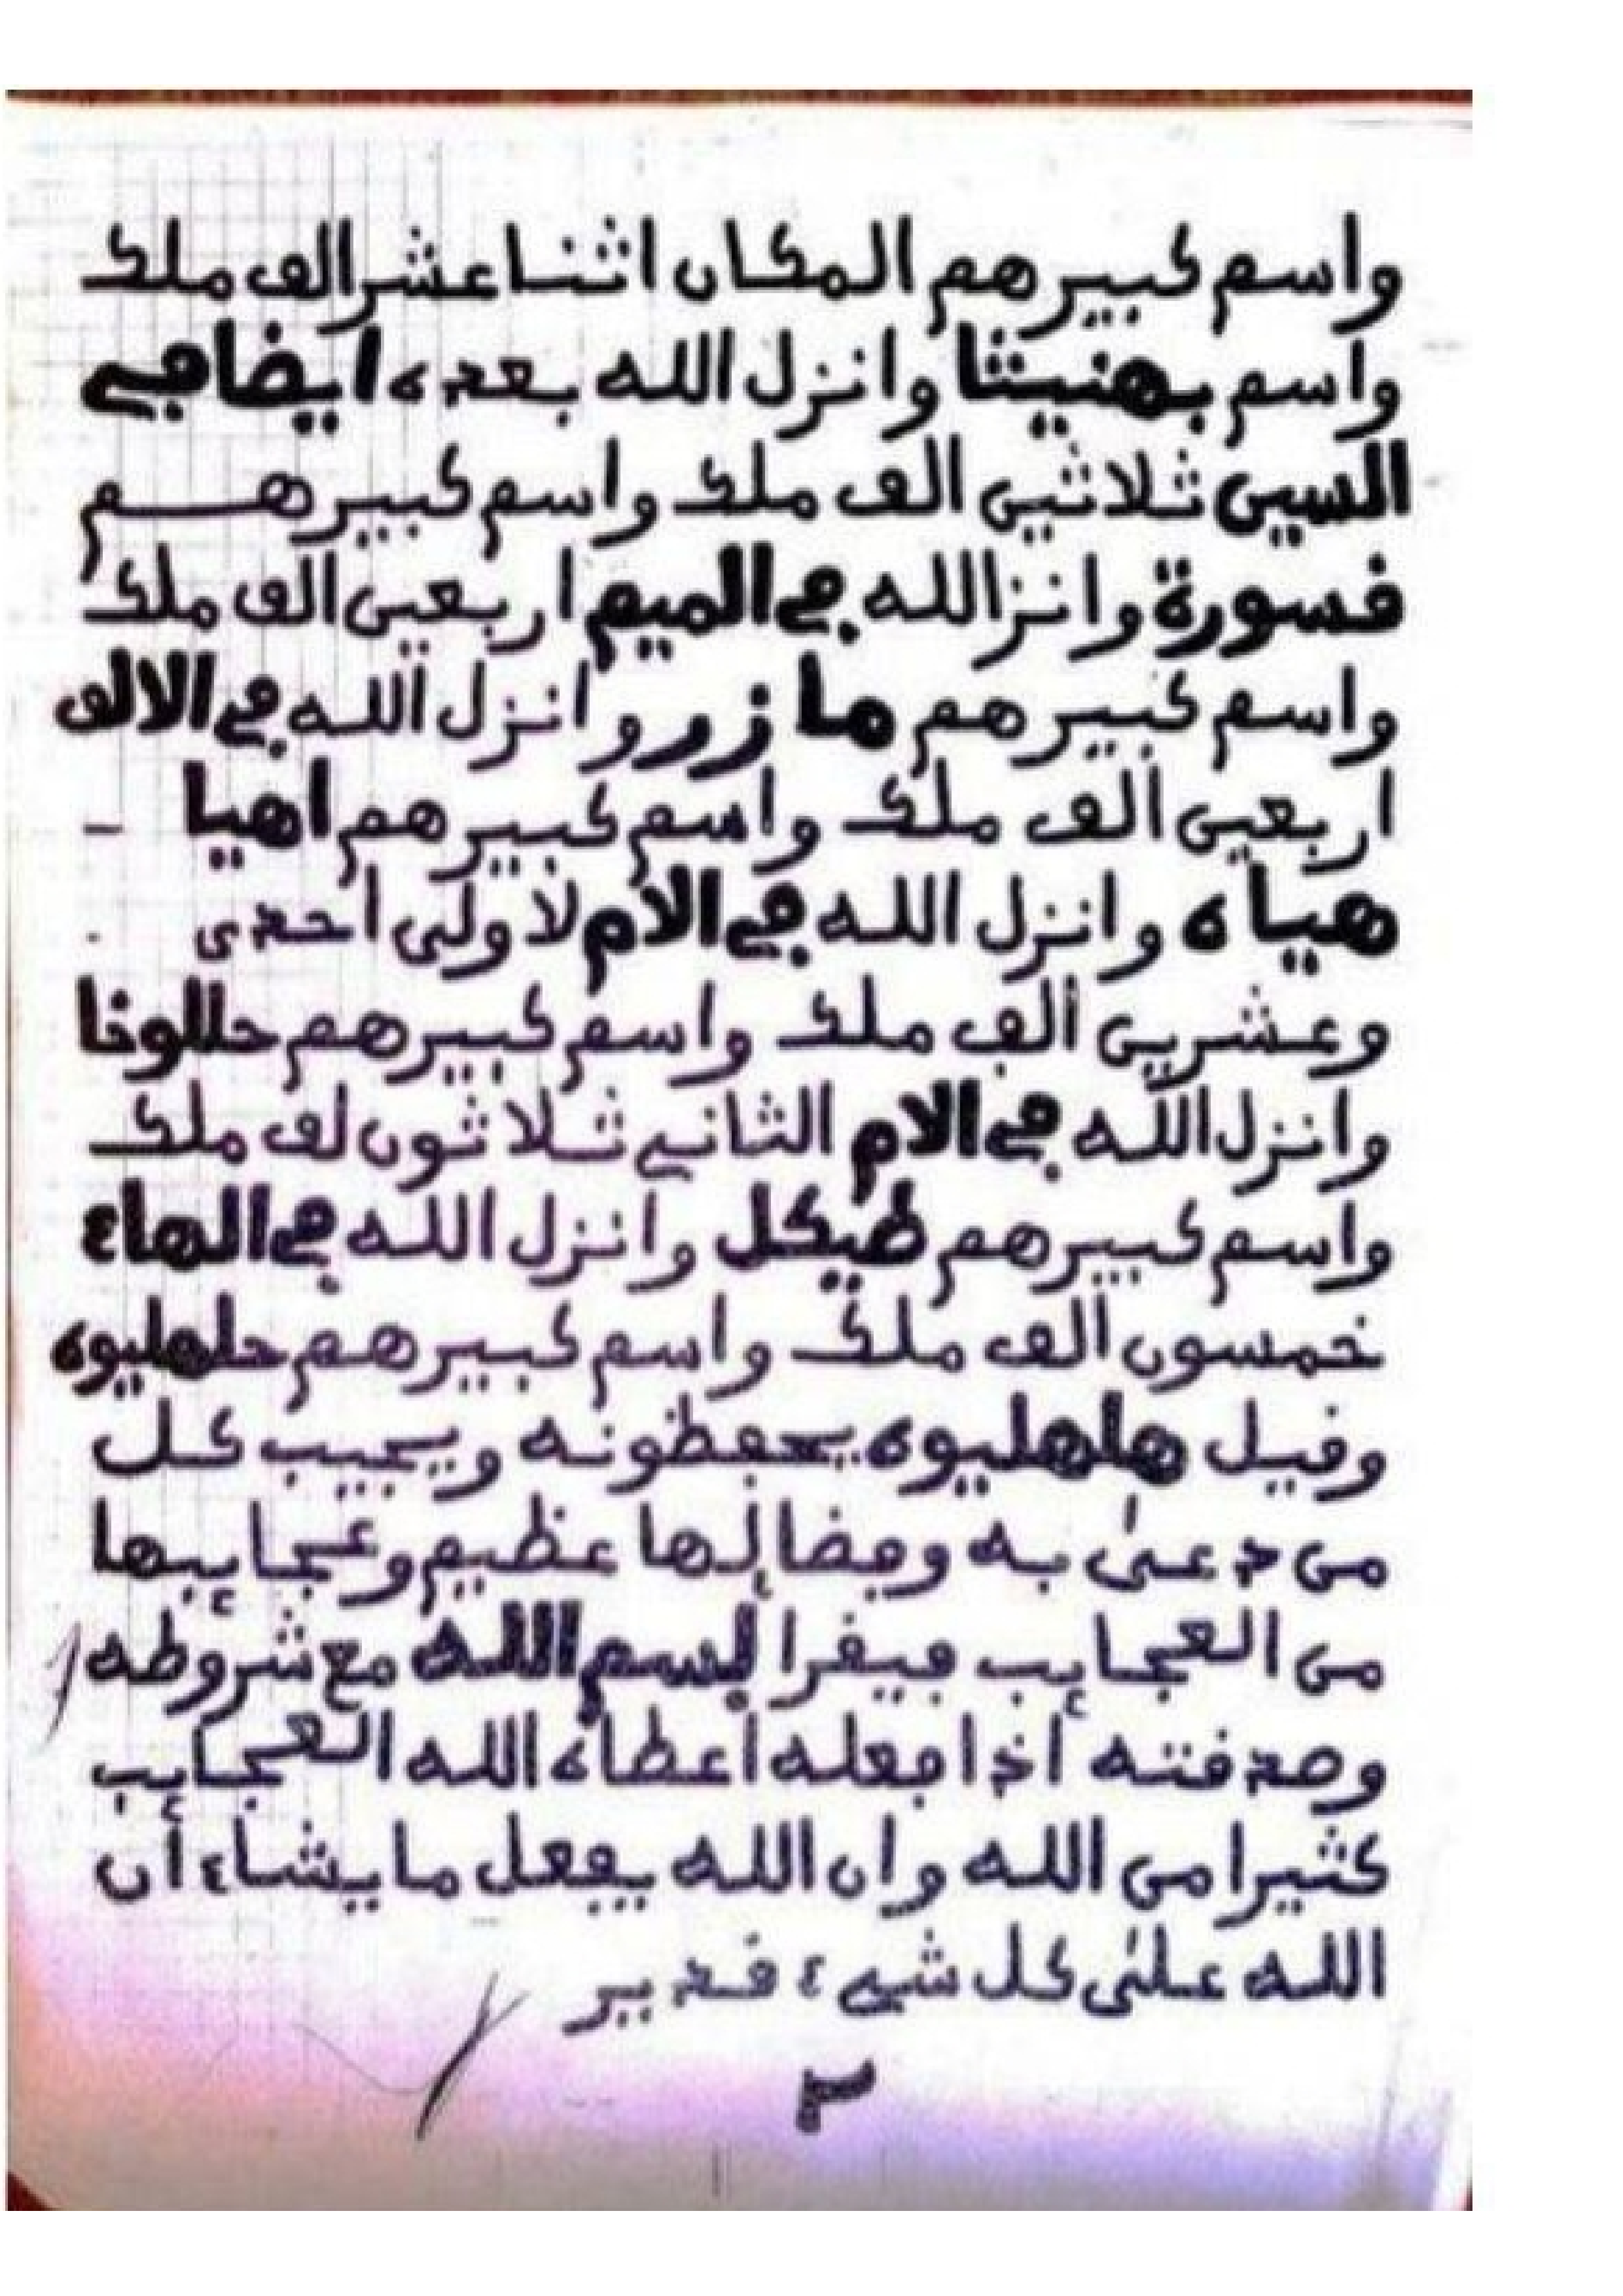 واسم كبيرهم المكان اثنا عشر الف ملك
واسم بهنيثا وانزل الله بعده ايضا في
السين ثلاثين الف ملك واسم كبيرهم
قسورة وانزالله في الميم اربعين الف ملك
واسم كبيرهم مازرر وانزل الله في الالف
اربعين الف ملك واسم كبيرهم اهيا
هياه وانزل الله في الام لاولى احدى
وعشرين الف ملك واسم كبيرهم حللونا
وانزل الله في الام الثاني ثلاثون لف ملك
واسم كبيرهم طيكل وانزل الله في الهاء
خمسون الف ملك واسم كبيرهم حلهليوه
وقيل هلهليوه يحفظونه ويجيب كل
من دعى به وفضائلها عظيم وعجايبها
من العجايب فيقرا لبسم الله مع شروطه
وصدقته أذا فعله أعطاه الله العجايب
كثيرا من الله وان الله يفعل ما يشاء أن
الله على كل شيء قدير
٣